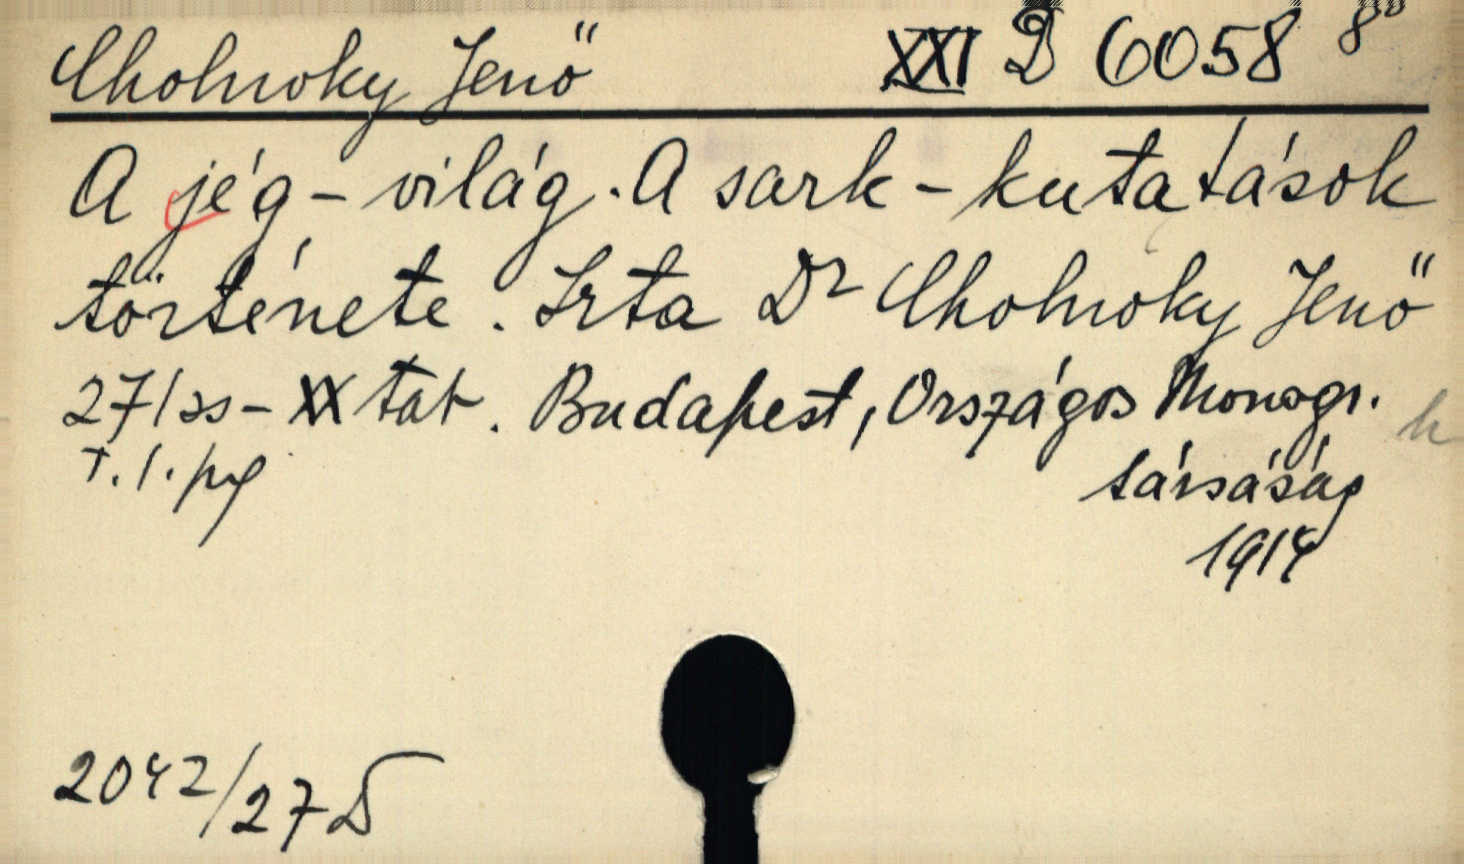 Cholnoky Jenő XXI D 6058 8°
A jég - világ. A sark - kutatások
története. Irta Dr Cholnoky Jenő
271 ss - XX tab. Budapest, Országos Monogr.
társaság
1914
2042/27 D